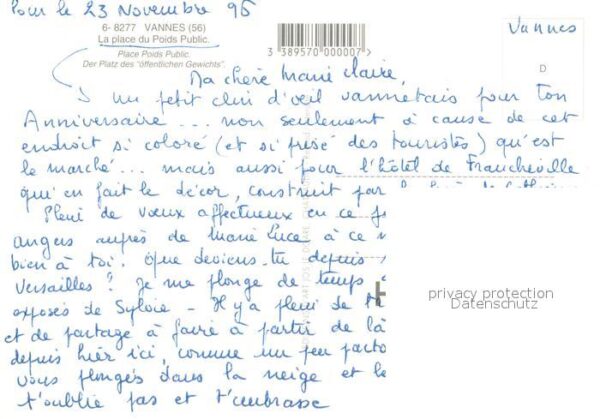 Pour le 23 Novembre 95
6- 8277 VANNES (56)
La place du Poids Public.
Place Poids Public.
Der Platz des "öffentlichen Gewichts".
3 389570 000007 >
Vannes
D
Ma chère Marie Claire,
un petit clin d'oeil vannetais pour ton
Anniversaire ... non seulement à cause de cet
endroit si coloré (et si prisé des touristes) qu'est
le marché ... mais aussi pour l'hôtel de Francheville
qui en fait le décor, construit par
Plein de vœux affectueux en ce
angers auprès de Marie Luce à ce
bien à toi. Que deviens-tu depuis
Versailles? Je me plonge de temps
exposés de Sylvie - Il y a plein de
et de partage à faire à partir de là
depuis hier ici, comme un peu parto
vous plongés dans la neige et le
t'oublie pas et t'embrasse
privacy protection
Datenschutz